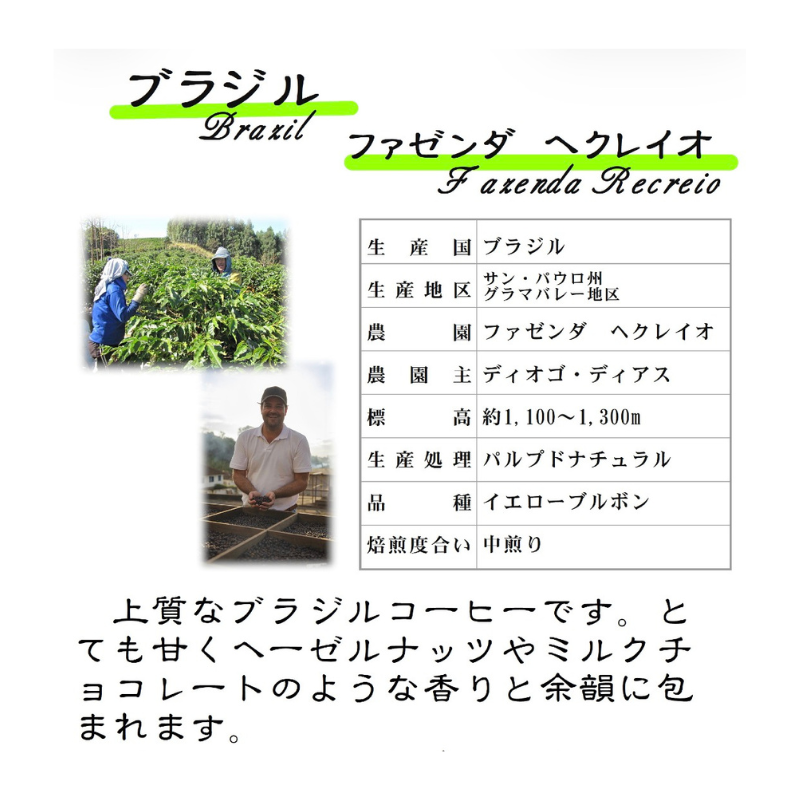 ブラジル
Brazil
ファゼンダ　ヘクレイオ
Fazenda Recreio
生産国 ブラジル
生産地区 サン・パウロ州
グラマバレー地区
農園 ファゼンダ　ヘクレイオ
農園主 ディオゴ・ディアス
標高 約1,100～1,300m
生産処理 パルプドナチュラル
品種 イエローブルボン
焙煎度合い 中煎り
上質なブラジルコーヒーです。と
ても甘くヘーゼルナッツやミルクチ
ョコレートのような香りと余韻に包
まれます。